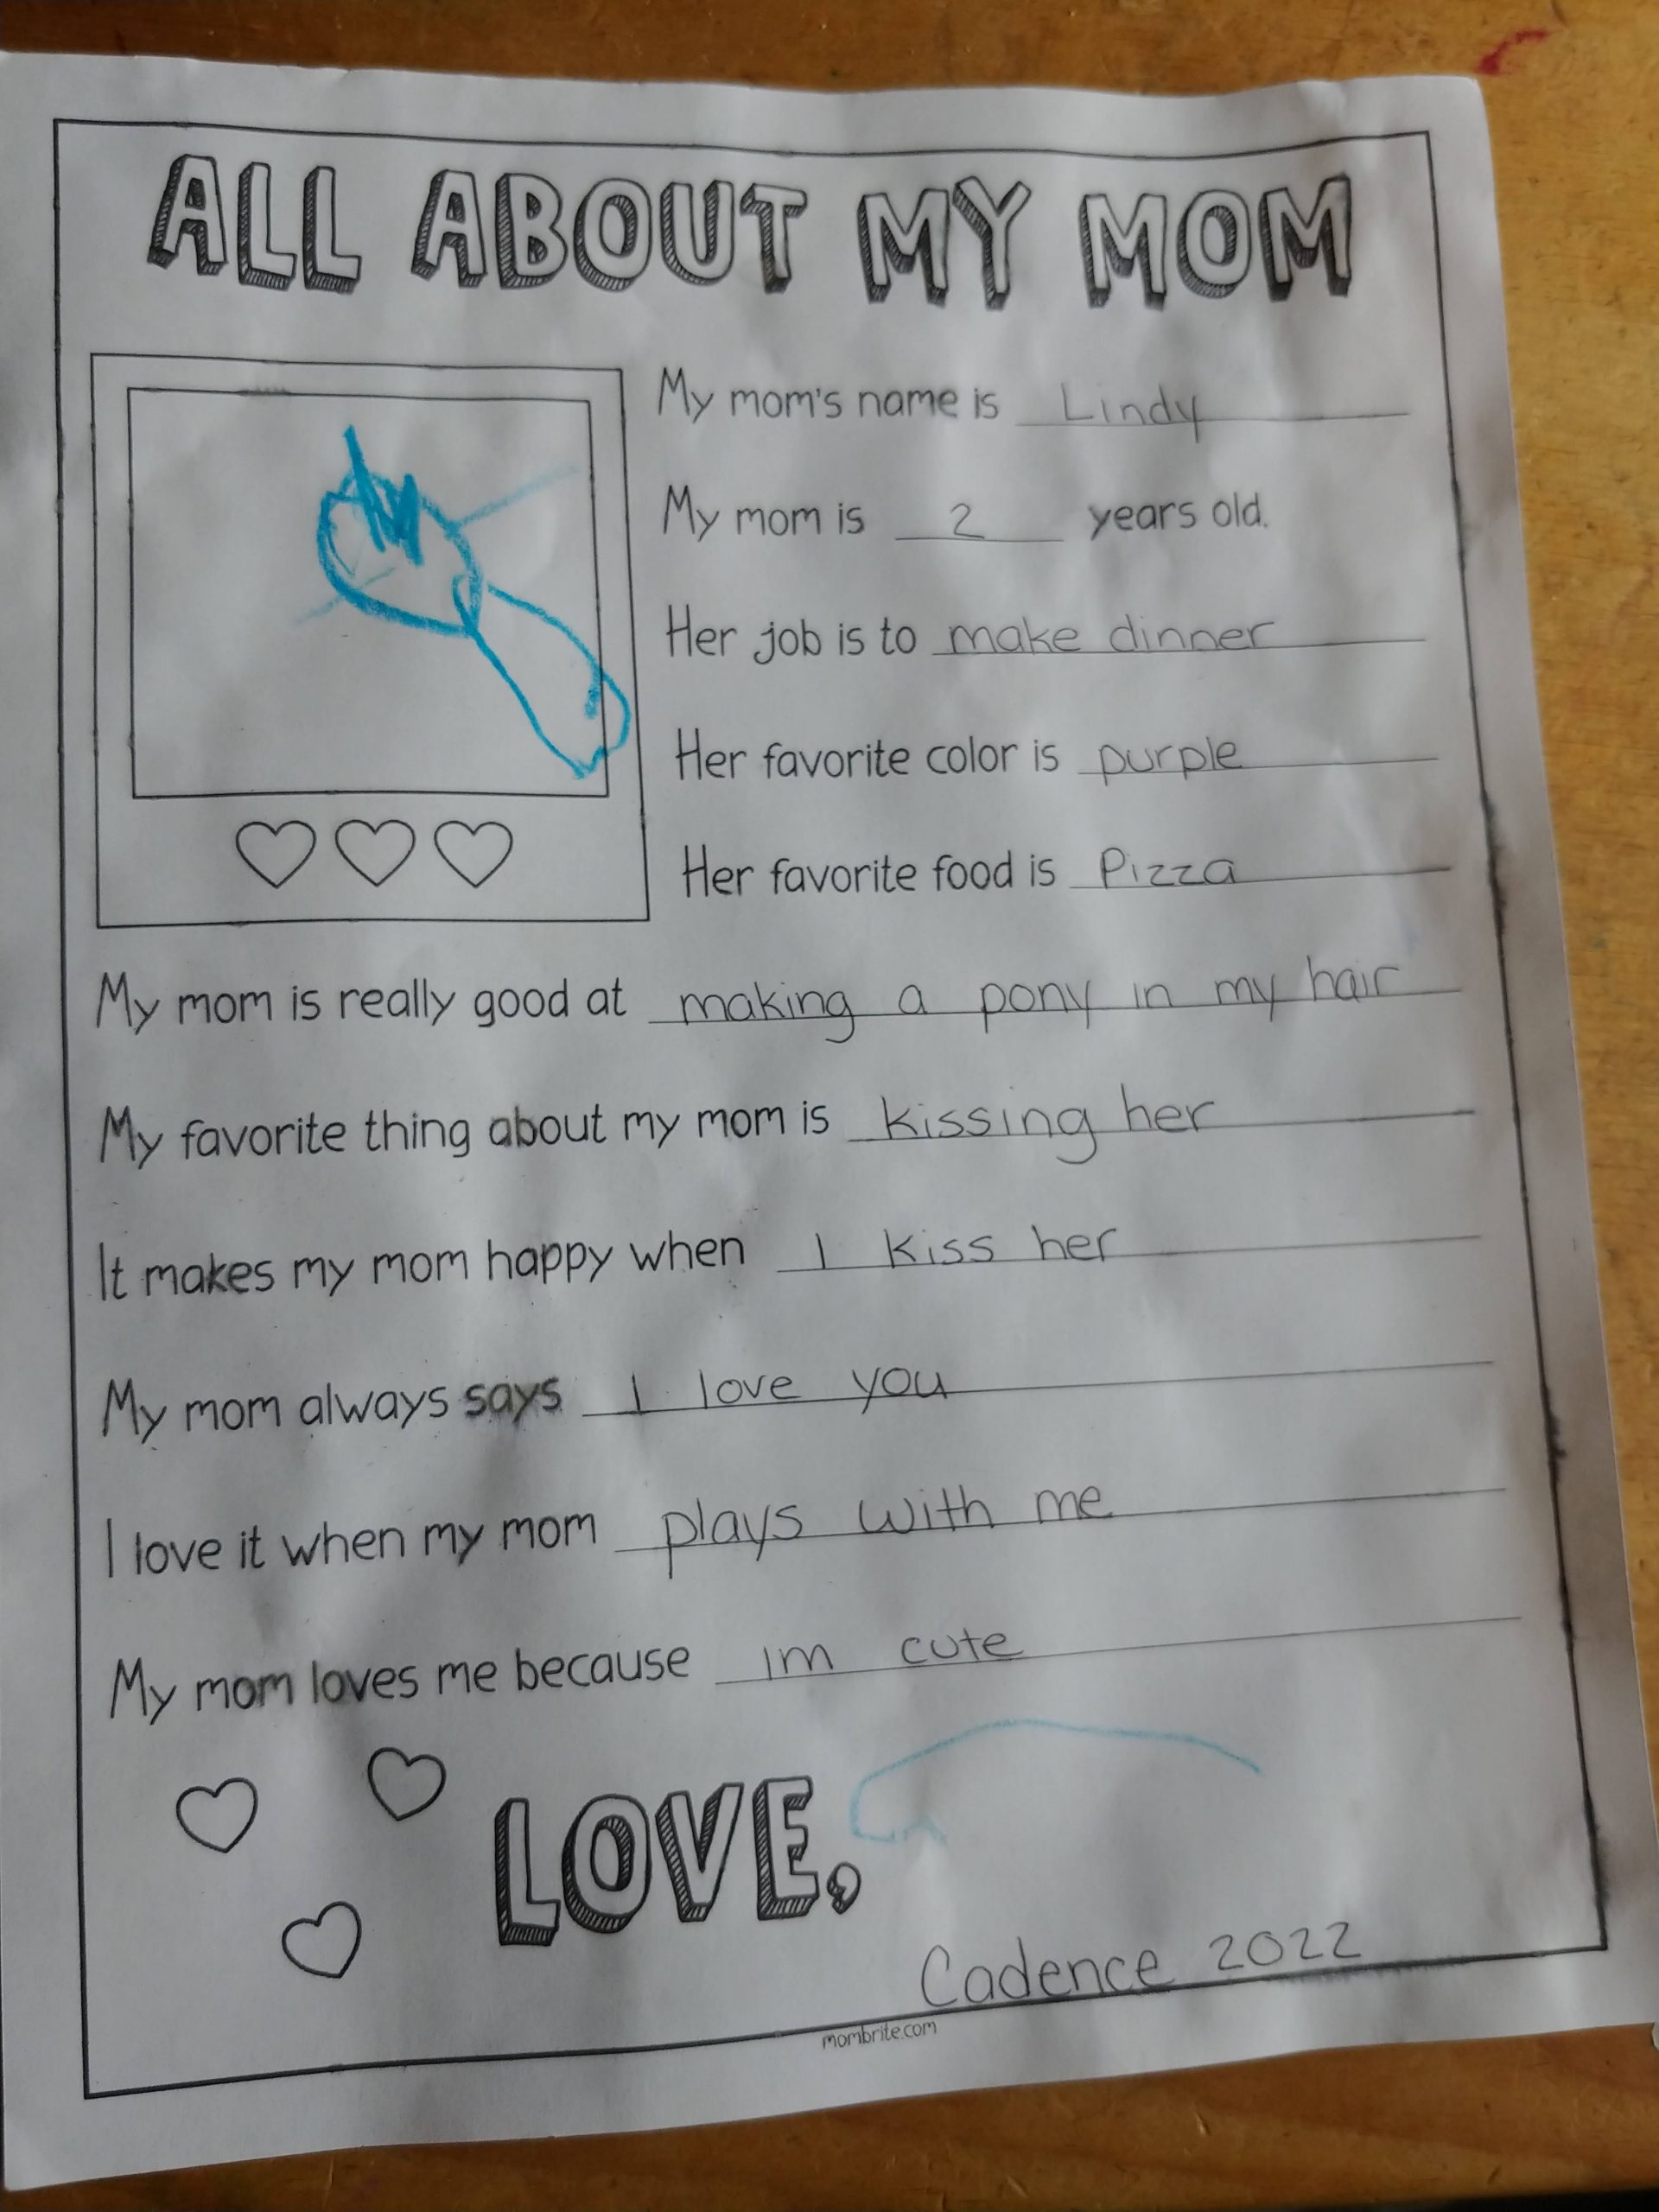 ALL ABOUT MY MOM
My mom's name is Lindy
My mom is 2 years old.
Her job is to make dinner
Her favorite color is purple
Her favorite food is Pizza
My mom is really good at making a pony in my hair
My favorite thing about my mom is kissing her
It makes my mom happy when I kiss her
My mom always says I love you
I love it when my mom plays with me
My mom loves me because im cute
LOVE,
Cadence 2022
mombrite.com